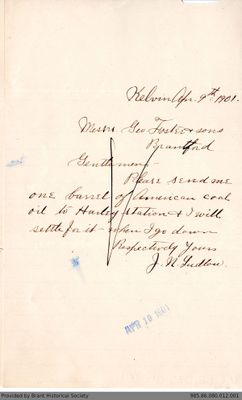 Kelvin Apr. 9th 1901.
Messrs Geo Foster & sons
Brantford
Gentlemen -
Please send me
one barrel of American coal
oil to Harley station & I will
settle for it - when I go down
Respectively Yours
J. N. Ludlow.
APR 10 1901
Provided by Brant Historical Society
985.86.080.012.001